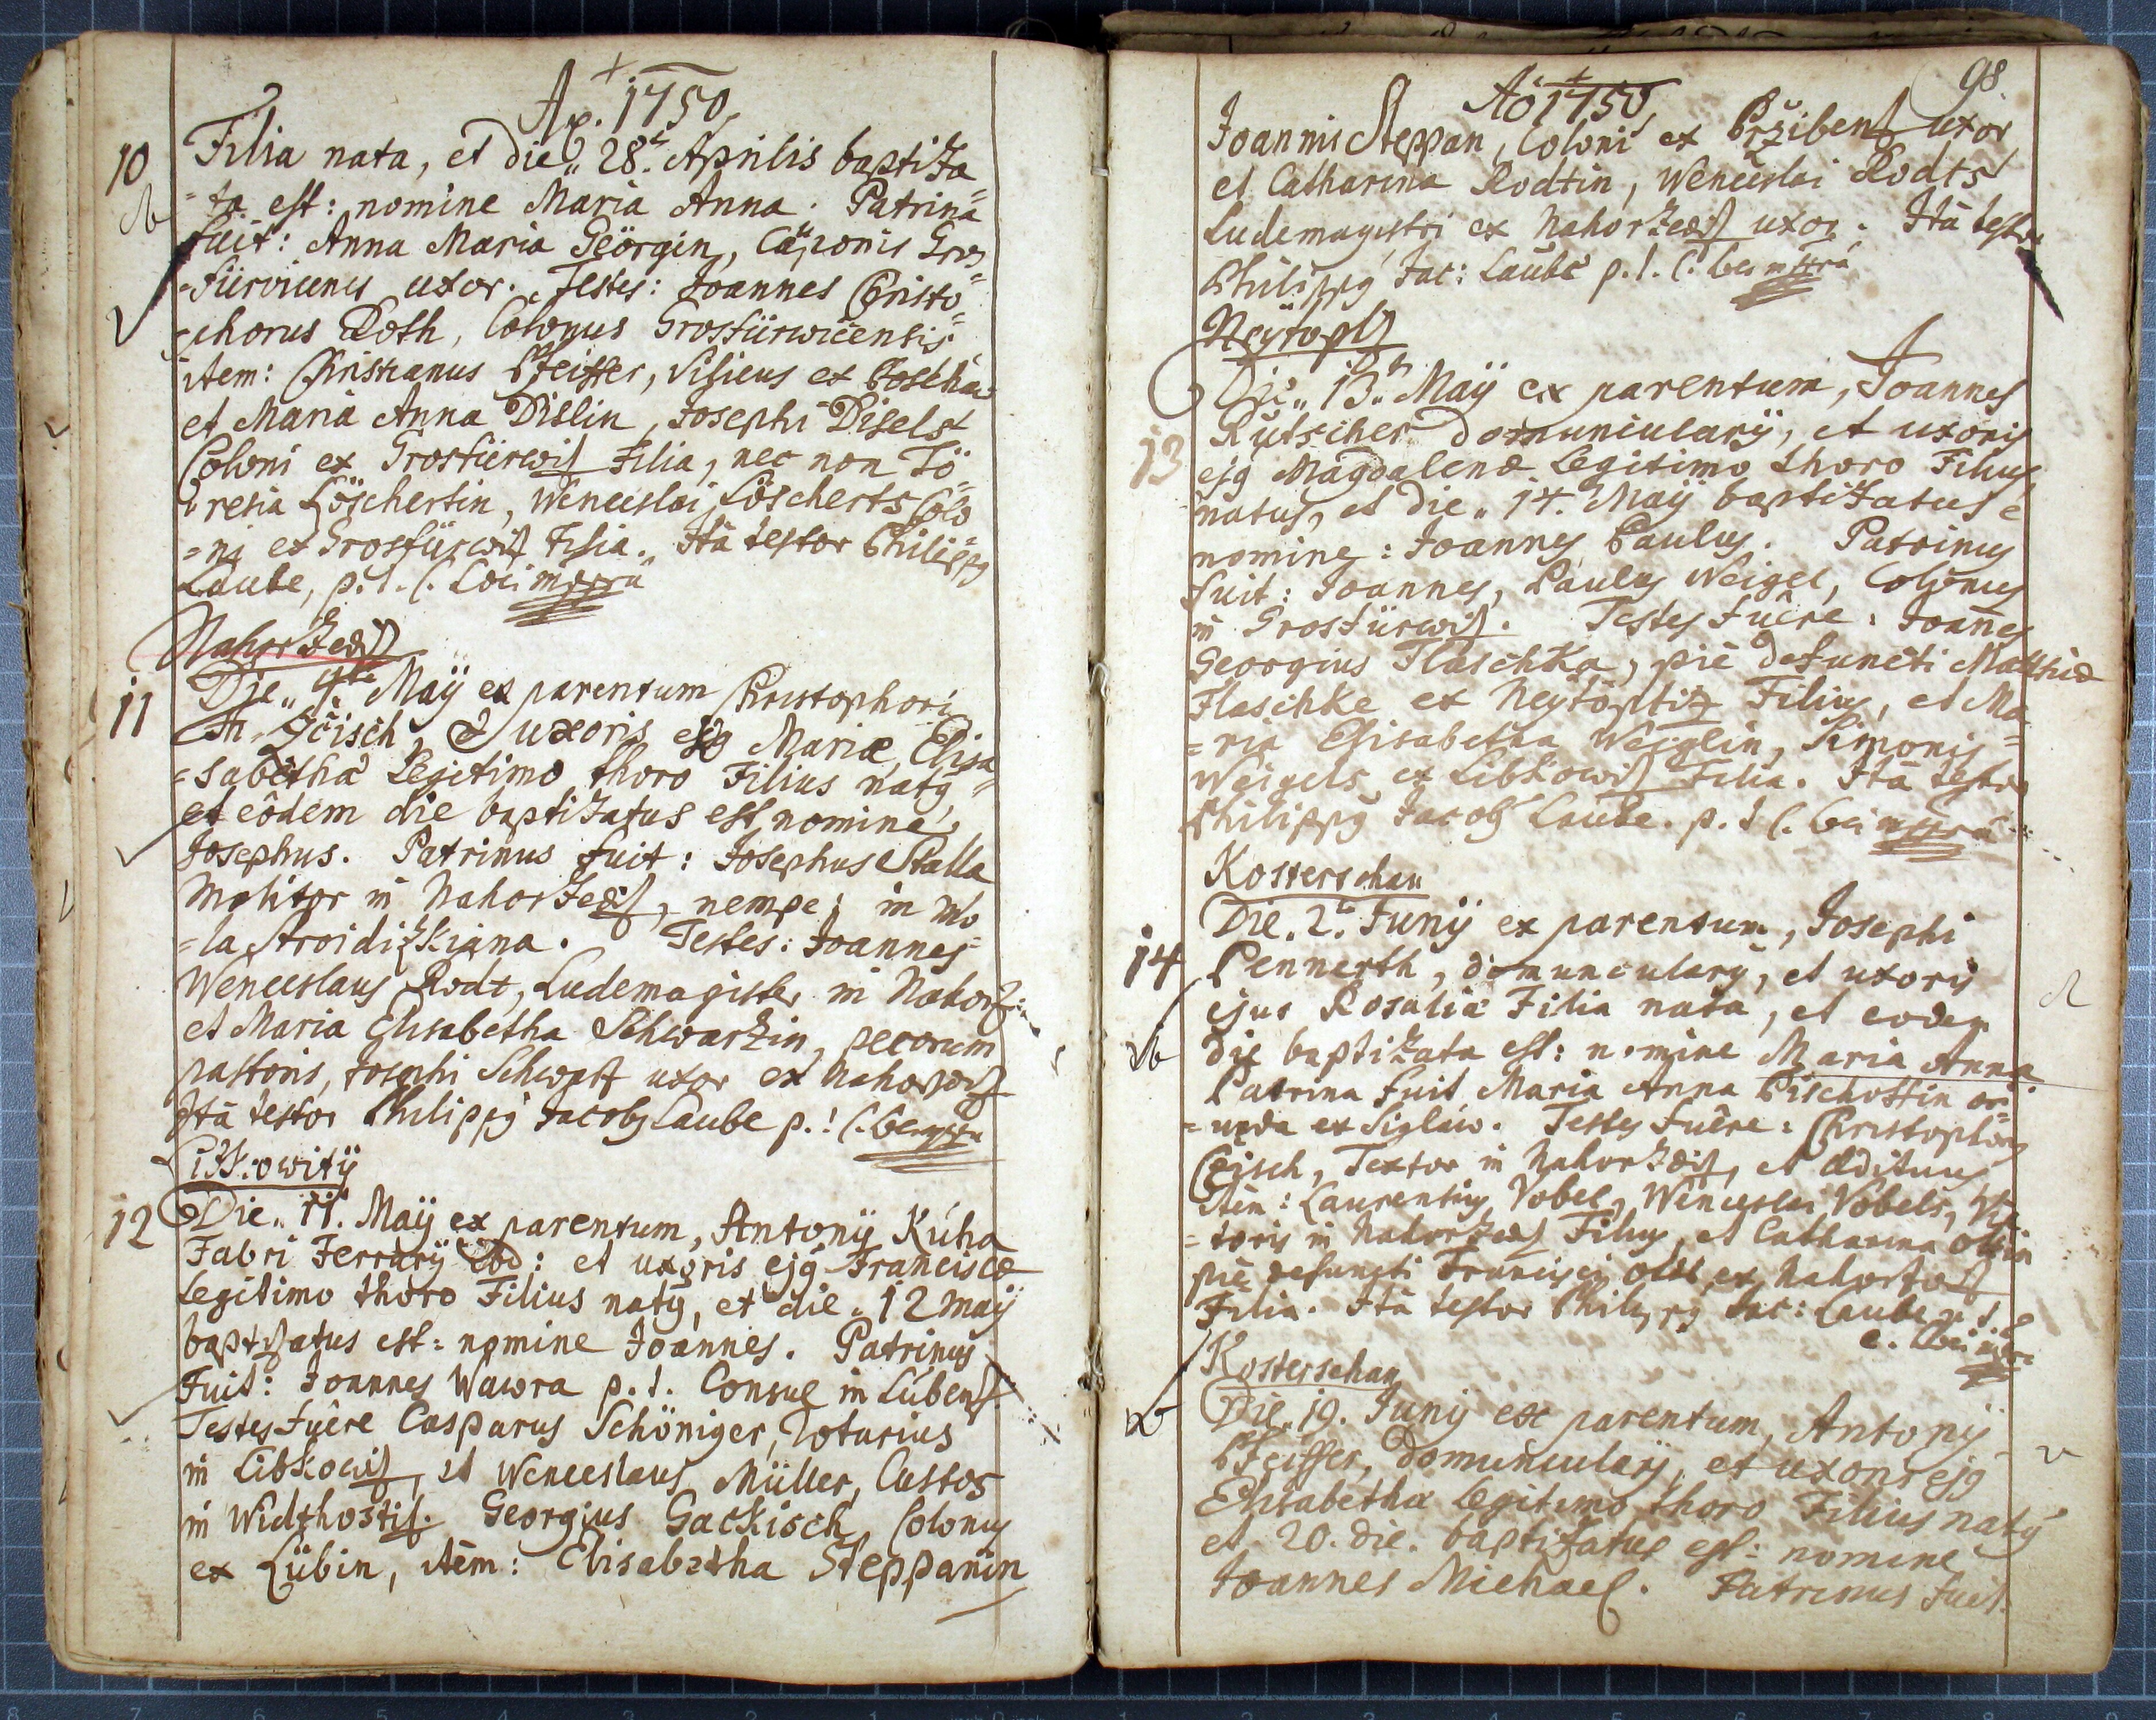 Ao. 1750
10 Filia nata, et die 28. Aprilis baptiza
=ta est: nomine Maria Anna. Patrina
fuit: Anna Maria Geörgin, Cauponis Gros
=fürvicenis uxor. Testes: Joannes Christo=
=phorus Roth, Colonus Grosfürwicensis
item: Christianus Pfeiffer, Vilicus ex Coscha:
et Maria Anna Dislin, Josephi Disels
Coloni ex Grosfürwiz Filia, nec non Tö=
=resia Löschertin, Wenceslai Löscherts Colo
=ni ex Grosfürwiz Filia. Ità testor Philipp9
Laube, p.t. C. Loci mppria
Nahorzedz
11 Die 9. Maÿ ex parentum Christophori
Czisch, & uxoris ej9 Mariæ Elisa
=sabetha Legitimo thoro Filius nat9
et eôdem die baptizatus est nomine
Josephus. Patrinus fuit: Josephus Stalla
Molitor in Nahorzedz, nempe: in mo
=la stroidizkiana. Testes: Joannes
Wenceslaus Rodt, Ludemagister in Nahorz:
et Maria Elisabetha Schwarzin, pecorum
pastoris, Josephi Schwartz uxor ex Nahorzedz
Ità testor Philipp9 Jacob9 Laube p.t. C. Loci mppria
Libkowitÿ
12 Die 11. Maÿ ex parentum, Antonÿ Kúha
Fabri Ferrarÿ ibid: et uxoris ej9 Franciscæ
Legitimo thoro Filius nat9, et die 12 Maÿ
baptizatus est: nomine Joannes. Patrinus
Fuit: Joannes Wawra p.t. Consul in Lubenz.
Testes fuêre Casparus Schöniger, Notarius
in Libkowiz, et Wenceslaus Müller, Custos
in Widthostiz. Georgius Gackisch, Colonus
ex Lübin, itèm: Elisabetha Steppanin
Ao 1750 98.
Joannis Steppan, Coloni ex Pržibenz uxor
et Catharina Rodtin, Wenceslai Rodts
Ludemagistri ex Nahorzedz uxor. Ità testor
Philipp9 Jac: Laube p.t. C. Loci mppria
Neÿtöplz
13 Die 13. Maÿ ex parentum, Joannes
Kutscher domuncularÿ, et uxoris
ej9 Magdalenæ Legitimo thoro Filius
natus, et die 14. Maÿ baptizatus e
nomine: Joannes Paulus. Patrinus
fuit: Joannes, Paulus Weigel, Colonus
in Grosfürwiz. Testes fuêre: Joannes
Georgius Flaschka, piè defuncti Mathiæ
Flaschke ex Neytöpliz Filius, et Ma
=ria Elisabetha Weiglin, Simonis
Weigels ex Libkowiz Filia. Ità testor
Philipp9 Jacob Laube. p.t. C. Loci mppria
Kosterschan
14 Die. 2. Junÿ ex parentum, Josephi
Pennerth, domuncularÿ, et uxoris
ejus Rosalia Filia nata, et eodem
die baptizata est: nomine Maria Anna
Patrina fuit Maria Anna Pischoffin ori
=unda ex Siglaw. Testes fuêre: Christophorus
Czisch, Textor in Nahorzedz, et ædituus
item: Laurentius Vobel, Wenceslai Vobels,
=toris in Nahorzedz Filius, et Catharina Oltin
piè defuncti Francisci Oldt ex Nahorzedz
Filia. Ità testor Philipp9 Jac: Laube p.t.
C. Loci mppria
Kosterschan
Die 19. Junÿ ex parentum, Antonÿ
Pfeiffer, domuncularÿ, et uxoris ej9
Elisabetha Legitimo thoro Filius nat9
et 20. die. baptizatus est: nomine
Joannes Michael. Patrinus fuit: